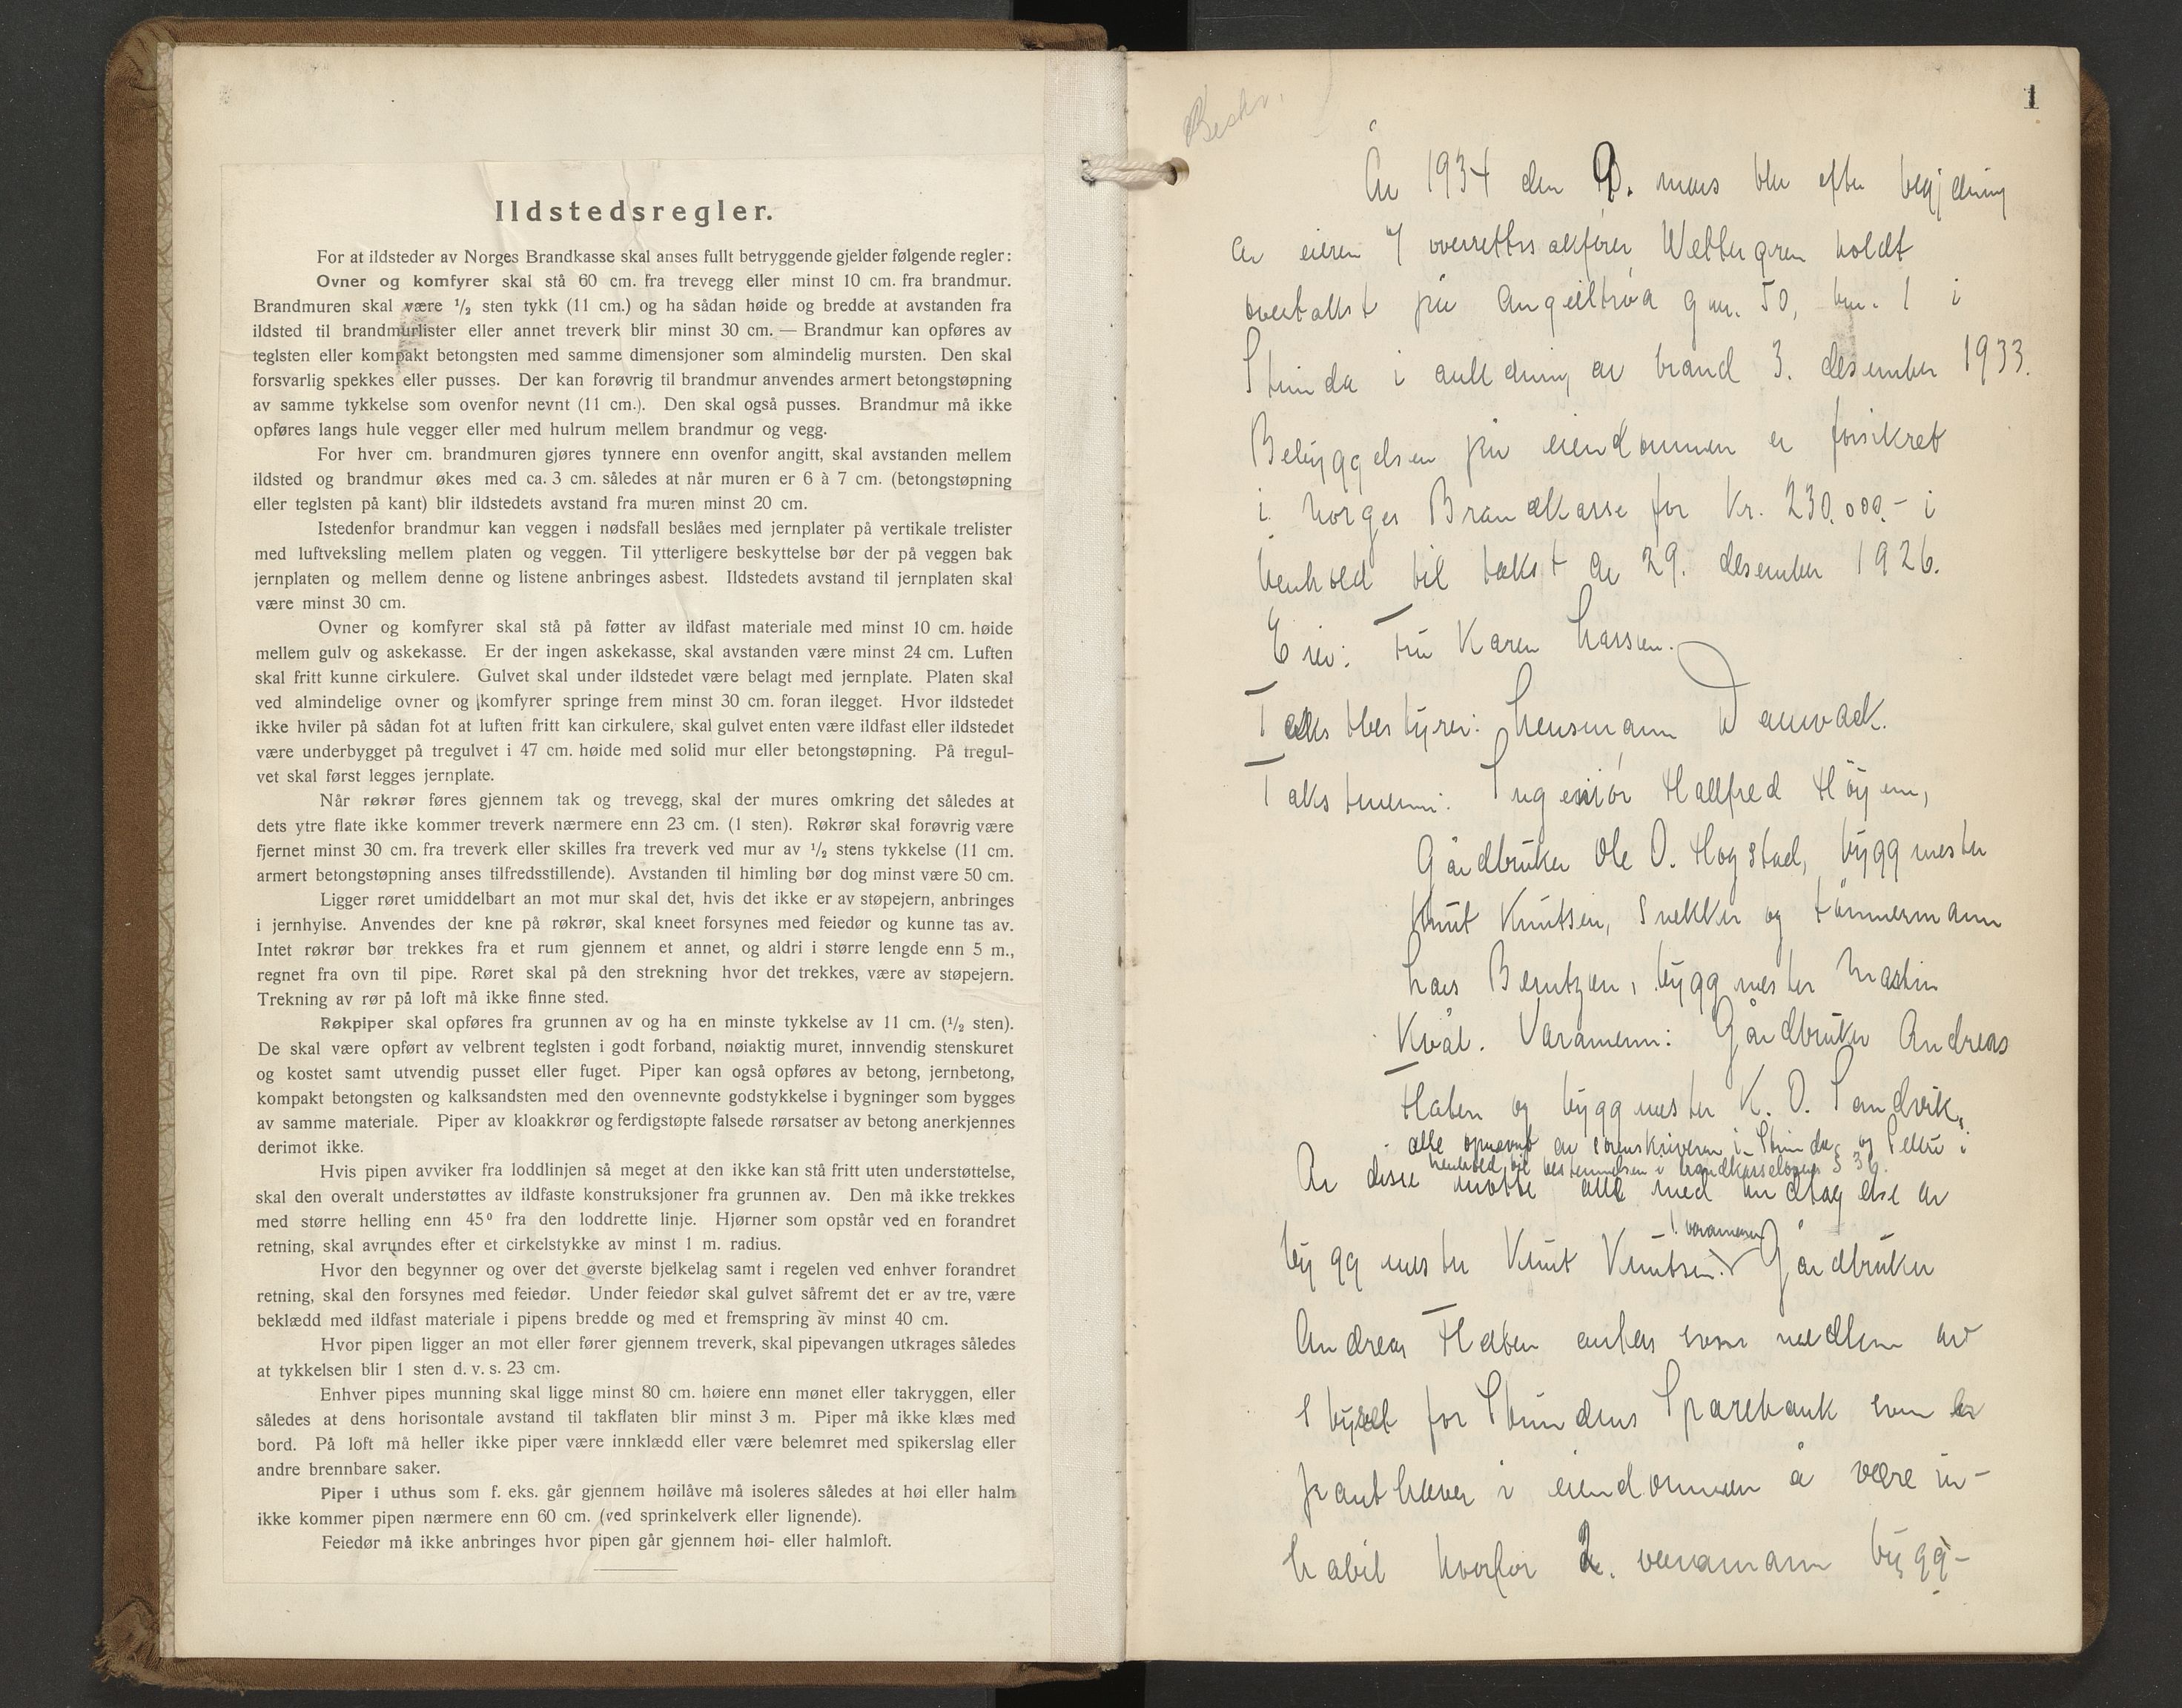 Ildstedsregler.
For at ildsteder av Norges Brandkasse skal anses fullt betryggende gjelder følgende regler:
Ovner og komfyrer skal stå 60 cm. fra trevegg eller minst 10 cm. fra brandmur.
Brandmuren skal være ½ sten tykk (11 cm.) og ha sådan høide og bredde at avstanden fra
ildsted til brandmurlister eller annet treverk blir minst 30 cm. — Brandmur kan opføres av
teglsten eller kompakt betongsten med samme dimensjoner som almindelig mursten. Den skal
forsvarlig spekkes eller pusses. Der kan forøvrig til brandmur anvendes armert betongstøpning
av samme tykkelse som ovenfor nevnt (11 cm.). Den skal også pusses. Brandmur må ikke
opføres langs hule vegger eller med hulrum mellem brandmur og vegg.
For hver cm. brandmuren gjøres tynnere enn ovenfor angitt, skal avstanden mellem
ildsted og brandmur økes med ca. 3 cm. således at når muren er 6 à 7 cm. (betongstøpning
eller teglsten på kant) blir ildstedets avstand fra muren minst 20 cm.
Istedenfor brandmur kan veggen i nødsfall beslåes med jernplater på vertikale trelister
med luftveksling mellem platen og veggen. Til ytterligere beskyttelse bør der på veggen bak
jernplaten og mellem denne og listene anbringes asbest. Ildstedets avstand til jernplaten skal
være minst 30 cm.
Ovner og komfyrer skal stå på føtter av ildfast materiale med minst 10 cm. høide
mellem gulv og askekasse. Er der ingen askekasse, skal avstanden være minst 24 cm. Luften
skal fritt kunne cirkulere. Gulvet skal under ildstedet være belagt med jernplate. Platen skal
ved almindelige ovner og komfyrer springe frem minst 30 cm. foran ilegget. Hvor ildstedet
ikke hviler på sådan fot at luften fritt kan cirkulere, skal gulvet enten være ildfast eller ildstedet
være underbygget på tregulvet i 47 cm. høide med solid mur eller betongstøpning. På tregul-
vet skal først legges jernplate.
Når røkrør føres gjennem tak og trevegg, skal der mures omkring det således at
dets ytre flate ikke kommer treverk nærmere enn 23 cm. (1 sten). Røkrør skal forøvrig være
fjernet minst 30 cm. fra treverk eller skilles fra treverk ved mur av ½ stens tykkelse (11 cm.
armert betongstøpning anses tilfredsstillende). Avstanden til himling bør dog minst være 50 cm.
Ligger røret umiddelbart an mot mur skal det, hvis det ikke er av støpejern, anbringes
i jernhylse. Anvendes der kne på røkrør, skal kneet forsynes med feiedør og kunne tas av.
Intet røkrør bør trekkes fra et rum gjennem et annet, og aldri i større lengde enn 5 m.,
regnet fra ovn til pipe. Røret skal på den strekning hvor det trekkes, være av støpejern.
Trekning av rør på loft må ikke finne sted.
Røkpiper skal opføres fra grunnen av og ha en minste tykkelse av 11 cm. (½ sten).
De skal være opført av velbrent teglsten i godt forband, nøiaktig muret, innvendig stenskuret
og kostet samt utvendig pusset eller fuget. Piper kan også opføres av betong, jernbetong,
kompakt betongsten og kalksandsten med den ovennevnte godstykkelse i bygninger som bygges
av samme materiale. Piper av kloakkrør og ferdigstøpte falsede rørsatser av betong anerkjennes
derimot ikke.
Hvis pipen avviker fra loddlinjen så meget at den ikke kan stå fritt uten understøttelse,
skal den overalt understøttes av ildfaste konstruksjoner fra grunnen av. Den må ikke trekkes
med større helling enn 45° fra den loddrette linje. Hjørner som opstår ved en forandret
retning, skal avrundes efter et cirkelstykke av minst 1 m. radius.
Hvor den begynner og over det øverste bjelkelag samt i regelen ved enhver forandret
retning, skal den forsynes med feiedør. Under feiedør skal gulvet såfremt det er av tre, være
beklædd med ildfast materiale i pipens bredde og med et fremspring av minst 40 cm.
Hvor pipen ligger an mot eller fører gjennem treverk, skal pipevangen utkrages således
at tykkelsen blir 1 sten d. v. s. 23 cm.
Enhver pipes munning skal ligge minst 80 cm. høiere enn mønet eller takryggen, eller
således at dens horisontale avstand til takflaten blir minst 3 m. Piper må ikke klæs med
bord. På loft må heller ikke piper være innklædd eller være belemret med spikerslag eller
andre brennbare saker.
Piper i uthus som f. eks. går gjennem høilåve må isoleres således at høi eller halm
ikke kommer pipen nærmere enn 60 cm. (ved sprinkelverk eller lignende).
Feiedør må ikke anbringes hvor pipen går gjennem høi- eller halmloft.
1
Beskr.
År 1934 den 9. mars blev efter begjæring
av eieren v/ overrettssakfører Wettergren holdt
overtakst på Angelltrøa gnr. 50, bnr. 1 i
Strinda i anledning av brand 3. desember 1933.
Bebyggelsen på eiendommen er forsikret
i Norges Brandkasse for kr. 230.000.- i
henhold til takst av 29. desember 1926.
Eier: Fru Karen Larssen.
Takstbestyrer: Lensmann Damvad.
Takstmenn: Ingeniør Hallfred Høyem,
Gårdbruker Ole O. Hogstad, byggmester
Knut Knutsen, snekker og tømmermann
Lars Berntzen, byggmester Martin
Kvål. Varamenn: Gårdbruker Andreas
Flaten og byggmester K. O. Sandvik,
alle opnevnt av sorenskriveren i Strinda og Selbu i
henhold til bestemmelsen i brandkasselovens § 36.
Av disse møtte alle med undtagelse av
byggmester Knut Knutsen. 1. varamann Gårdbruker
Andreas Flaten anføres som medlem av
styret for Strindens Sparebank som er
panthaver i eiendommen å være in-
habil hvorfor 2. varamann bygg-